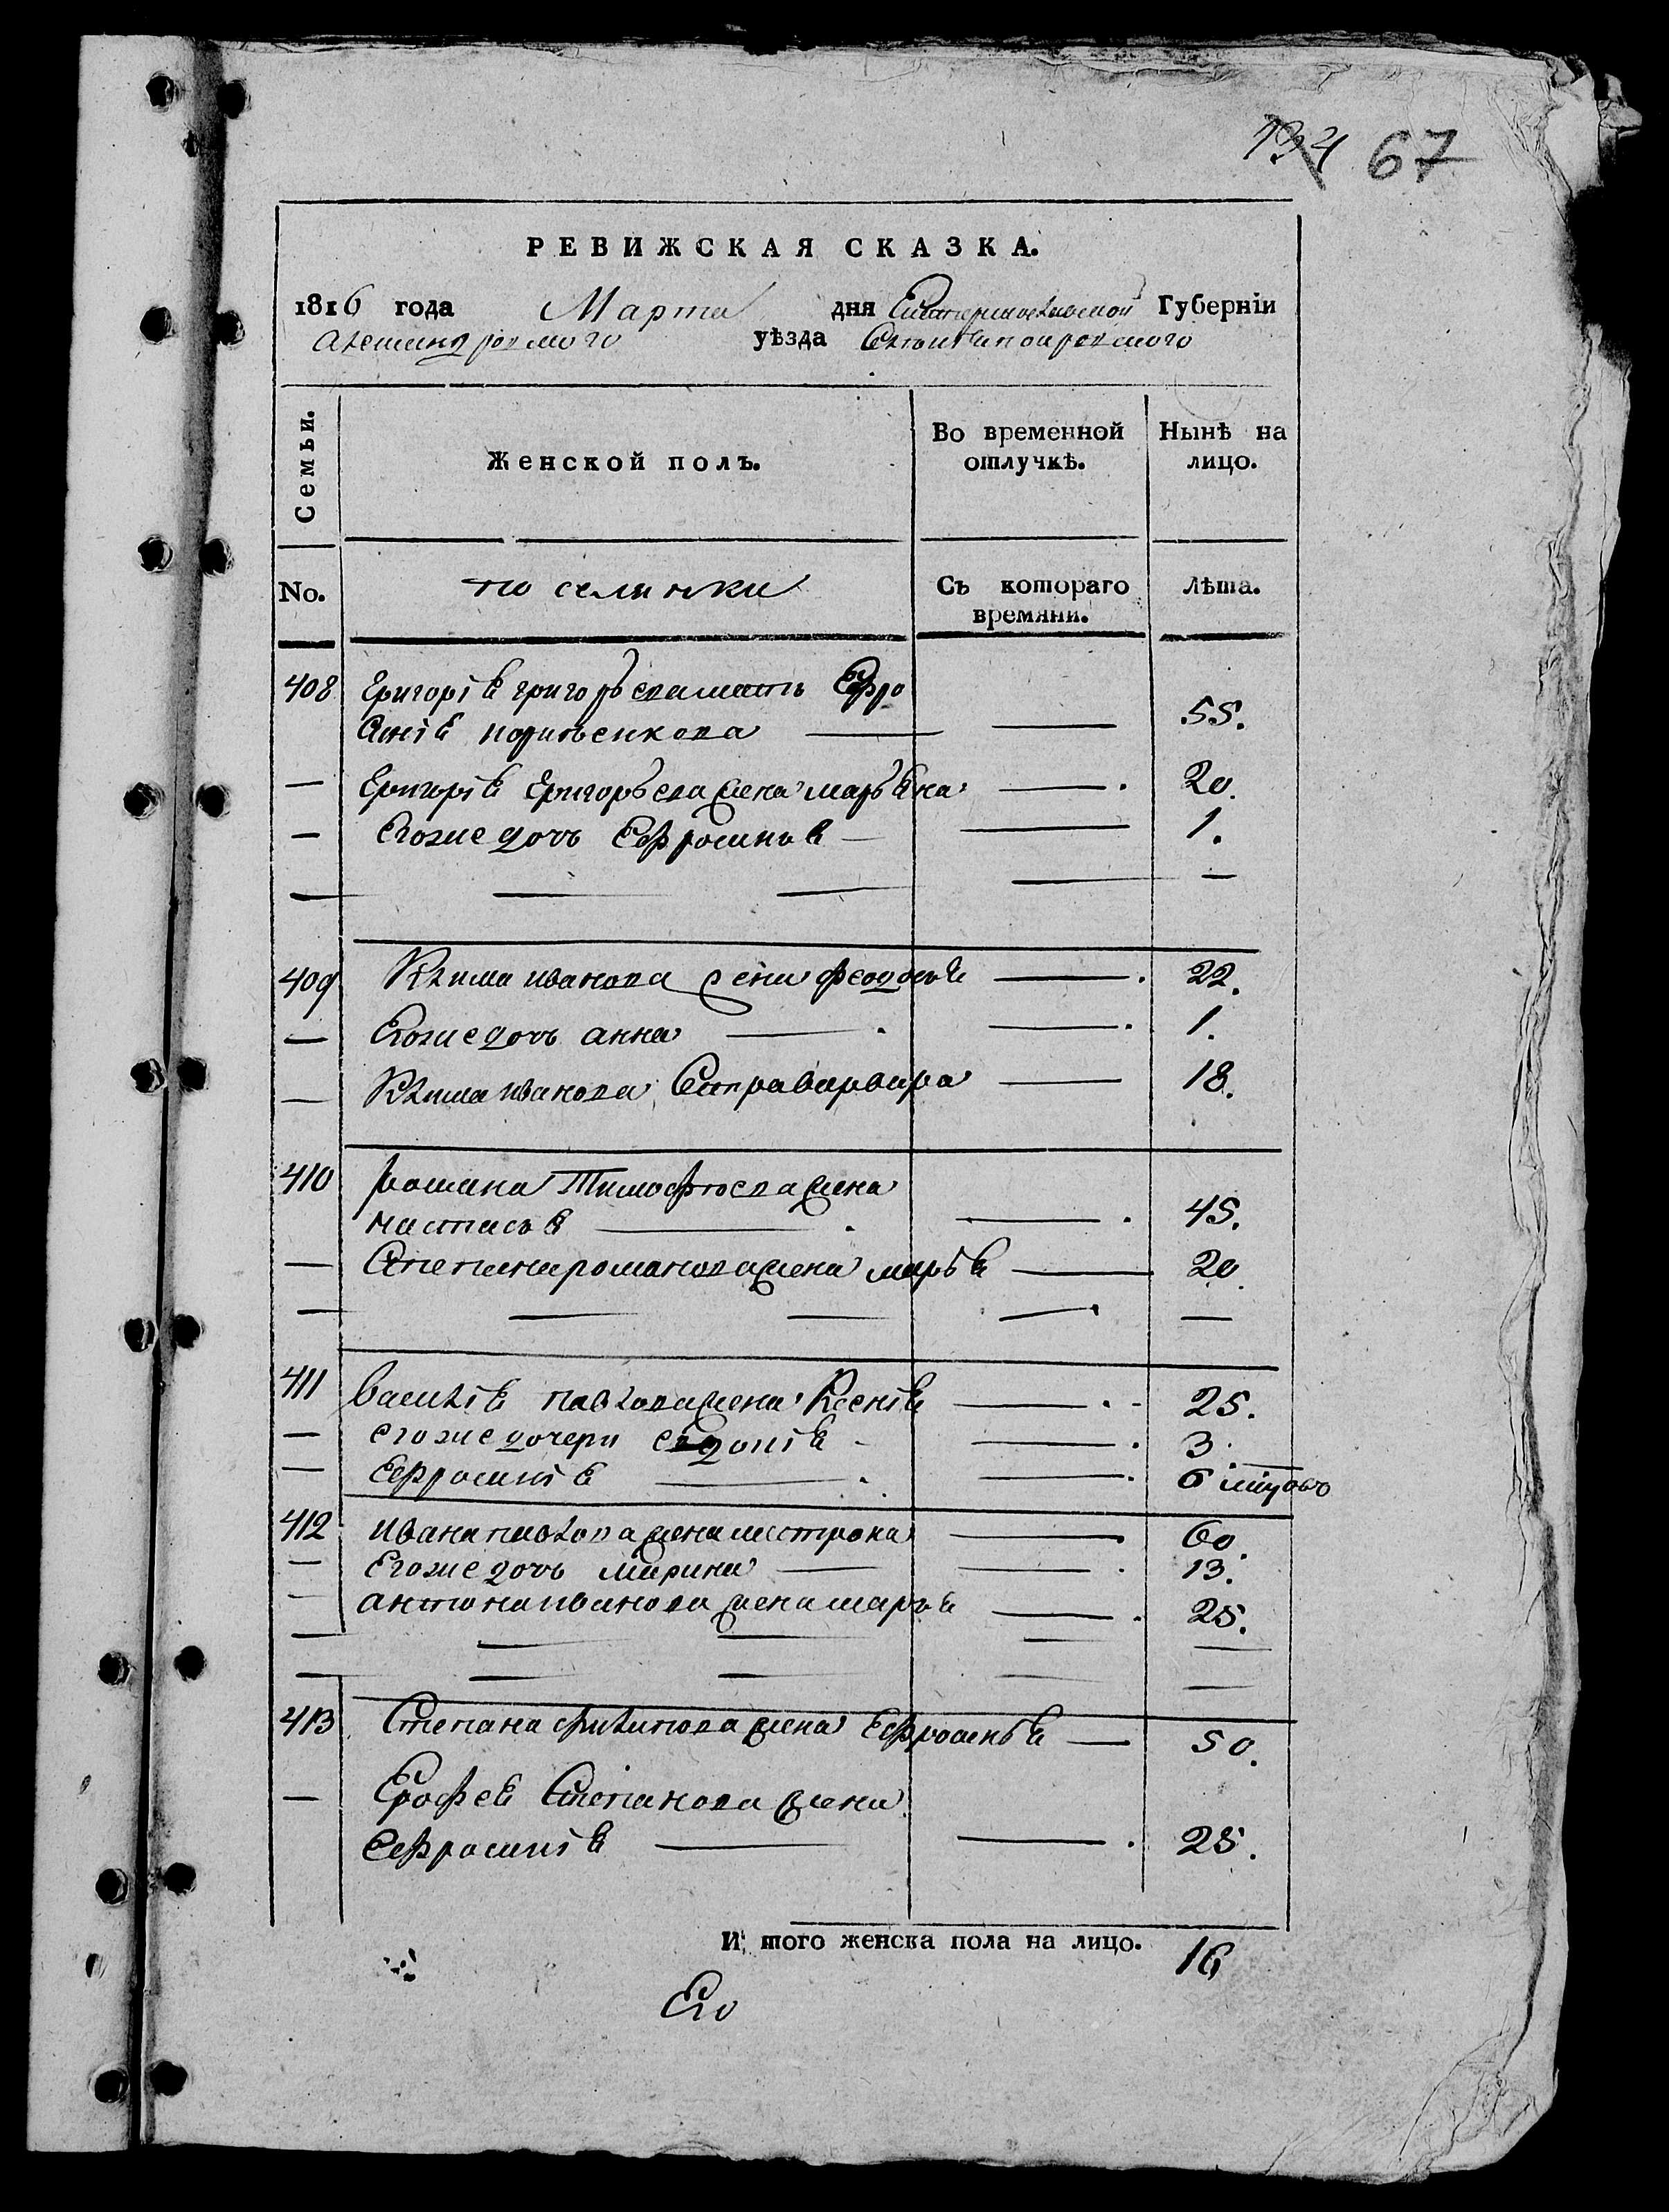 134 67
РЕВИЖСКАЯ СКАЗКА.
1816 года Марта дня Екатеринославской Губерніи
александровского уѣзда Села Покровского
Семьи.
Женской полъ.
Во временной отлучкѣ.
Нынѣ на лицо.
No.
поселянки
Съ котораго времяни.
Лѣта.
408 Григорія григорьева мать Ефро
синія 55.
— Григорія Григорьева жена марьяна 20.
— Егоже дочь Ефросинья 1.
409 Клима иванова жена феодосья 22.
— Егоже дочь анна 1.
— Клима иванова Сестра варвара 18.
410 романа Тимофѣева жена
настасья 45.
— Степана романова жена марья 20
411 василія павлова жена Ксенія 25.
— егоже дочери евдокія 3.
— Ефросинія 6 мцовъ
412 ивана павлова жена 60.
— Егоже дочь марина 13.
— антона иванова жена марья 25.
413 Степана филипова жена Ефросинья 50.
— Ерофея Степанова жена
Ефросинія 25.
И того женска пола на лицо. 16
Его